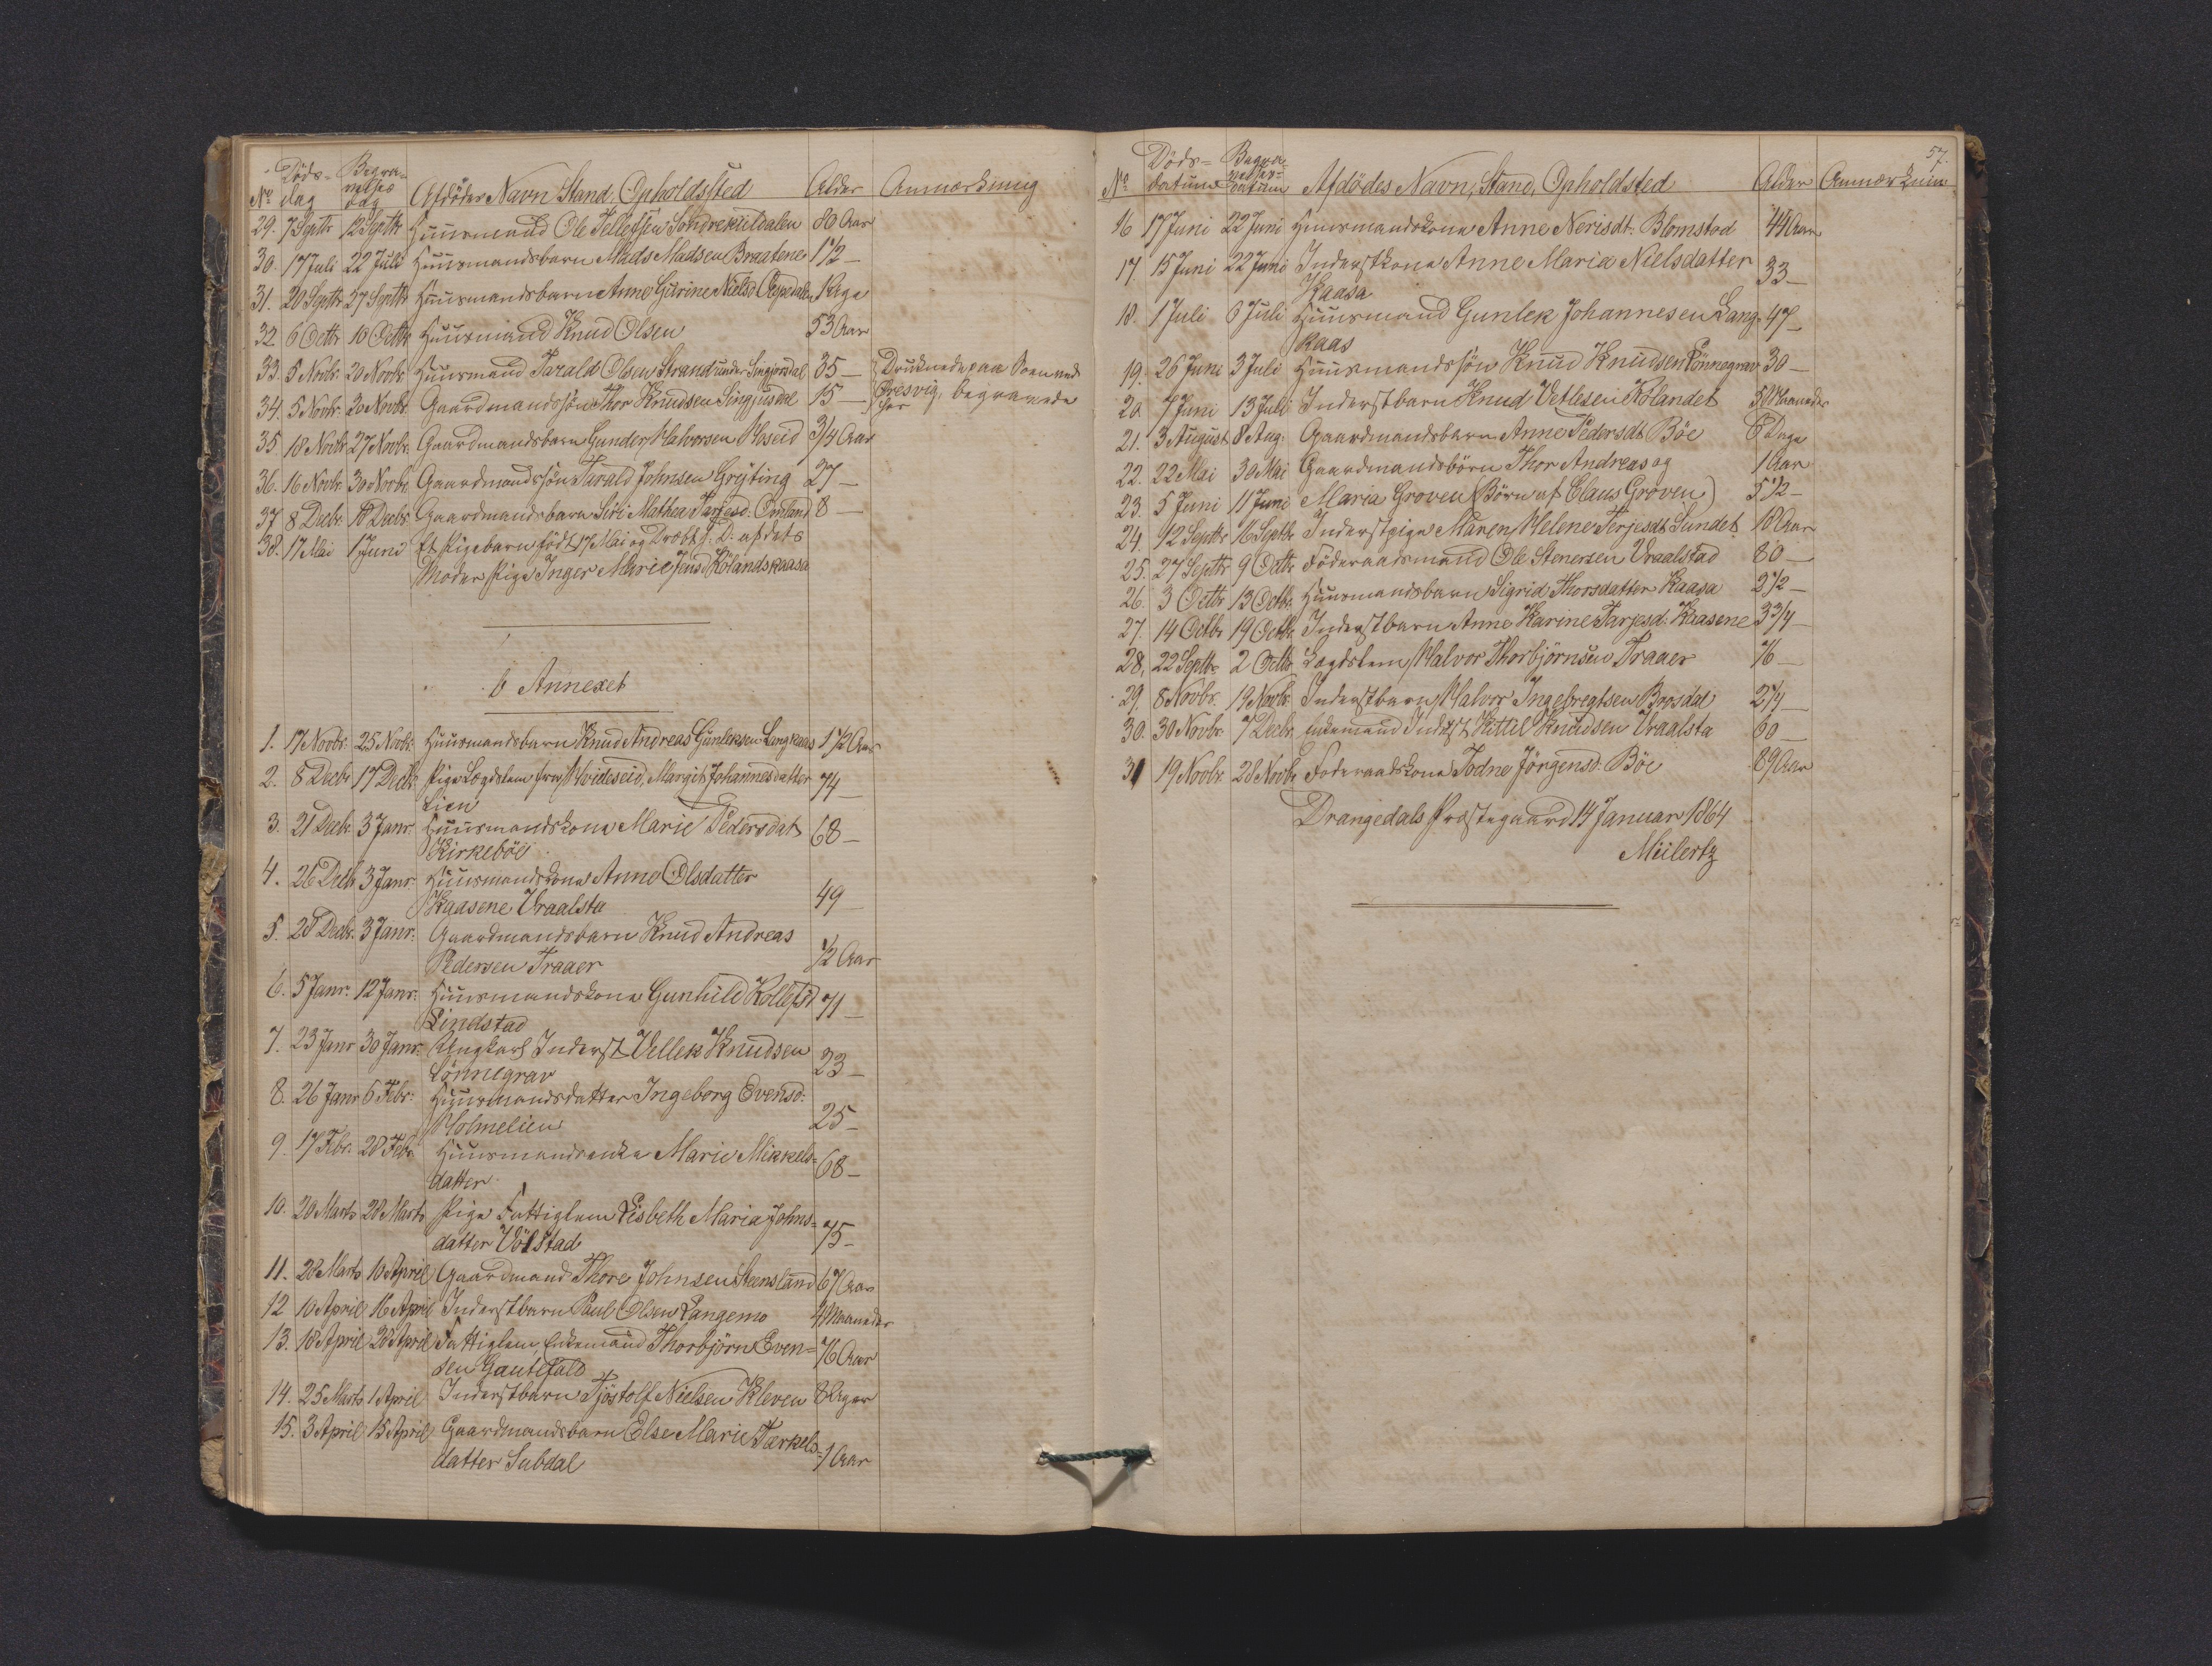 Döds- Begra-
No dag velses dag Afdödes Navn, Stand, Opholdssted Alder Anmærkning
29. 7 Septbr 12 Septbr Huusmand Ole Tellefsen Söndrekilldalen 80 Aar
30. 17 Juli 22 Juli Huusmandsbarn Mads Madsen Braatene 1 1/2 —
31. 20 Septbr 27 Septbr Huusmandsbarn Anne Gurine Nielsd 1 Uge
32 6 Octbr 10 Octbr Huusmand Knud Olsen 53 Aar
33. 5 Novbr. 20 Novbr. Huusmand Tarald Olsen Strand under Singjusdal 35 — Druknede paa
34. 5 Novbr. 20 Novbr. Gaardmandssön Thor Knudsen Singjusdal 15 — begravede her
35. 18 Novbr. 27 Novbr. Gaardmandsbarn Gunder Halvorsen Moseid 3/4 Aar
36. 16 Novbr. 30 Novbr. Gaardmandssön Tarald Johnsen Gryting 27 —
37 8 Decbr. 18 Decbr. Gaardmandsbarn Siri Mathea Tarjesd. Omland 8 —
38. 17 Mai 1 Juni Et Pigebarn födt 17 Mai og Dræbt s: D: af dets
Moder Pige Inger Marie Jensd Kölandskaasa
b Annexet
1. 17 Novbr. 25 Novbr. Huusmandsbarn Knud Andreas Gunleksen Langkaas 1 1/2 Aar
2. 8 Decbr 17 Decbr. Pige Lægdslem fra Hvideseid, Margit Johannesdatter 74 —
Lien
3. 21 Decbr. 3 Janr. Huusmandskone Marie Pedersdat 68 —
Kirkeböe
4. 26 Decbr 3 Janr. Huusmandskone Anne Olsdatter
Kaasene Vraalsta 49 —
5. 28 Decbr. 3 Janr. Gaardmandsbarn Knud Andreas
Pedersen Traaer 1/2 Aar
6. 5 Janr. 12 Janr. Huusmandskone Gunhild Kollefsd 71 —
Lindstad
7. 23 Janr 30 Janr. Ungkarl Inderst Vellek Knudsen 23 —
Lönnegrav
8. 26 Janr 6 Febr. Huusmandsdatter Ingeborg Evensd:
Holmelien 25 —
9. 17 Febr. 28 Febr. Huusmandsenke Marie Mikkels- 68 —
datter
10. 20 Marts 28 Marts Pige Fattiglem Lisbeth Maria Johns-
datter Völstad 75 —
11. 28 Marts 10 April Gaardmand Thore Johnsen Steensland 67 Aar
12 10 April 16 April Inderstbarn Paul Olsen Langemo 4 Maaneder
13. 18 April 28 April Fattiglem, Enkemand Thorbjörn Even- 76 Aar
sen Gautefald
14. 25 Marts 1 April Inderstbarn Tjöstolf Nielsen Kleven 8 Uger
15. 3 April 15 April Gaardmandsbarn Else Marie Tærkels- 1 Aar
datter Subdal
57.
Döds- Begra-
No datum velses- datum Afdödes Navn, Stand, Opholdsted Alder Anmærkning
16 17 Juni 22 Juni Huusmandskone Anne Nerisdt. Blomstad 44 Aar
17. 15 Juni 22 Juni Inderstkone Anne Maria Nielsdatter 33 —
Kaasa
18. 1 Juli 6 Juli Huusmand Gunlek Johannesen Lang- 47 —
kaas
19. 26 Juni 3 Juli Huusmandssön Knud Knudsen Lönnegrav 30 —
20. 7 Juni 13 Juli Inderstbarn Knud Vetlesen Kölandet 5 Maaneder
21. 3 August 8 Aug. Gaardmandsbarn Anne Pedersdt Böe 6 Dage
22. 22 Mai 30 Mai Gaardmandsbörn Thor Andreas og 1 Aar
23. 5 Juni 11 Juni Maria Groven (Börn af Claus Groven) 5 1/2 —
24. 12 Septbr 16 Septbr Inderstpige Maren Helene Terjesdt Sundet 18 Aar
25. 27 Septbr 9 Octbr Föderaadsmand Ole Stenersen Vraalstad 80 —
26. 3 Octbr 13 Octbr Huusmandsbarn Sigrid Thorsdatter Kaasa 2 1/2 —
27. 14 Octbr 19 Octbr Inderstbarn Anne Karine Tarjesd. Kaasene 3 3/4 —
28. 22 Septbr. 2 Octbr Lægdslem Halvor Thorbjörnsen Traaer 76 —
29. 8 Novbr. 19 Novbr. Inderstbarn Halvor Ingebregtsen Brosdal 2 1/4 —
30. 30 Novbr. 7 Decbr. Enkemand Inderst Kittil Knudsen Vraalsta 60 —
31 19 Novbr. 28 Novbr Foderaadskone Jodne Jörgensd. Böe 89 Aar
Drangedals Præstegaard 14 Januar 1864
Miilertz